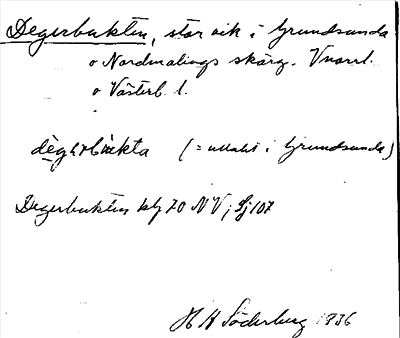 Degerbukten, stor vik i Grundsunda
o Nordmalings skärg. Vnorrl.
o Västerb. l.
(= uttalet i Grundsunda)
Degerbukten kbl 70 NV; Sj 107
H H Söderberg 1936